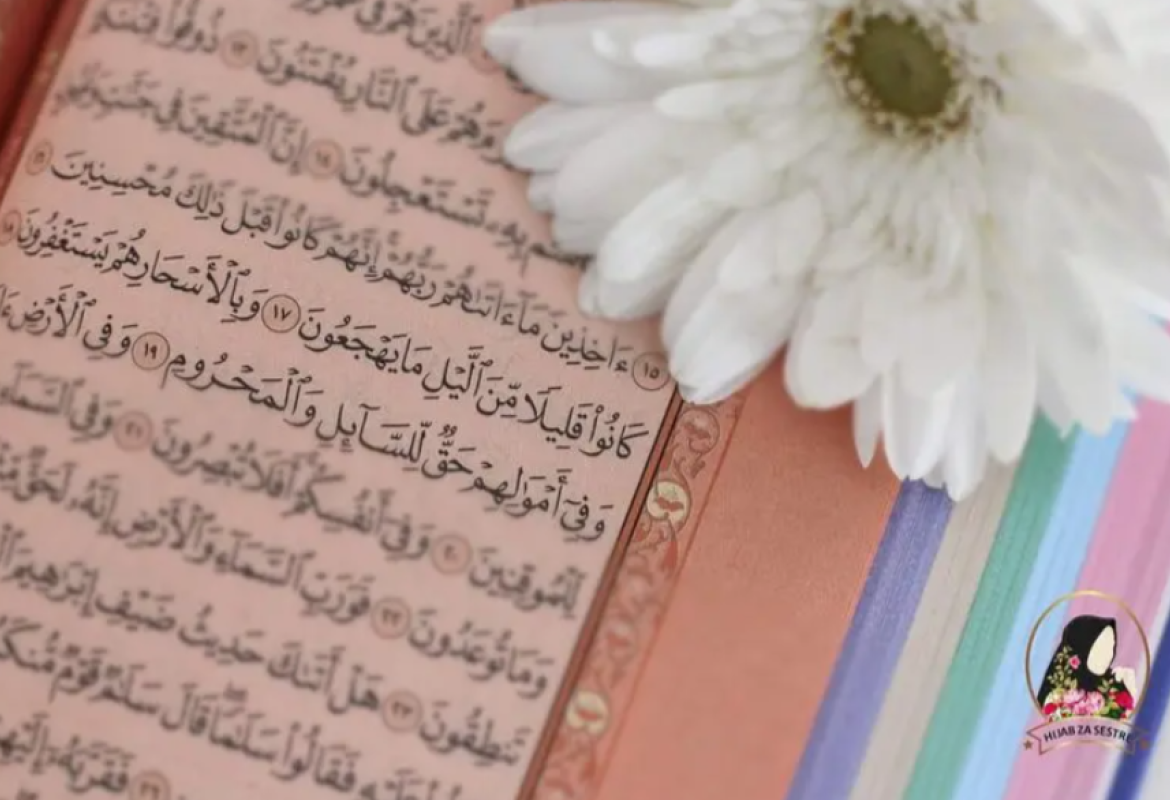 ٱلَّذِينَ هُمۡ فِي
هُمۡ عَلَى ٱلنَّارِ يُفۡتَنُونَ ١٣ ذُوقُواْ
بِهِۦ تَسۡتَعۡجِلُونَ ١٤ إِنَّ ٱلۡمُتَّقِينَ فِي جَنَّٰتٖ
١٥ ءَاخِذِينَ مَآ ءَاتَىٰهُمۡ رَبُّهُمۡۚ إِنَّهُمۡ كَانُواْ قَبۡلَ ذَٰلِكَ مُحۡسِنِينَ ١٦
كَانُواْ قَلِيلٗا مِّنَ ٱلَّيۡلِ مَا يَهۡجَعُونَ ١٧ وَبِٱلۡأَسۡحَارِ هُمۡ يَسۡتَغۡفِرُونَ ١٨
وَفِيٓ أَمۡوَٰلِهِمۡ حَقّٞ لِّلسَّآئِلِ وَٱلۡمَحۡرُومِ ١٩ وَفِي ٱلۡأَرۡضِ
لِّلۡمُوقِنِينَ ٢٠ وَفِيٓ أَنفُسِكُمۡۚ أَفَلَا تُبۡصِرُونَ ٢١ وَفِي ٱلسَّمَآءِ
وَمَا تُوعَدُونَ ٢٢ فَوَرَبِّ ٱلسَّمَآءِ وَٱلۡأَرۡضِ إِنَّهُۥ لَحَقّٞ
تَنطِقُونَ ٢٣ هَلۡ أَتَىٰكَ حَدِيثُ ضَيۡفِ إِبۡرَٰهِيمَ
عَلَيۡهِ فَقَالُواْ سَلَٰمٗاۖ قَالَ سَلَٰمٞ قَوۡمٞ
٢٦ فَقَرَّبَهُۥٓ إِلَيۡهِمۡ
HIJAB ZA SESTRE